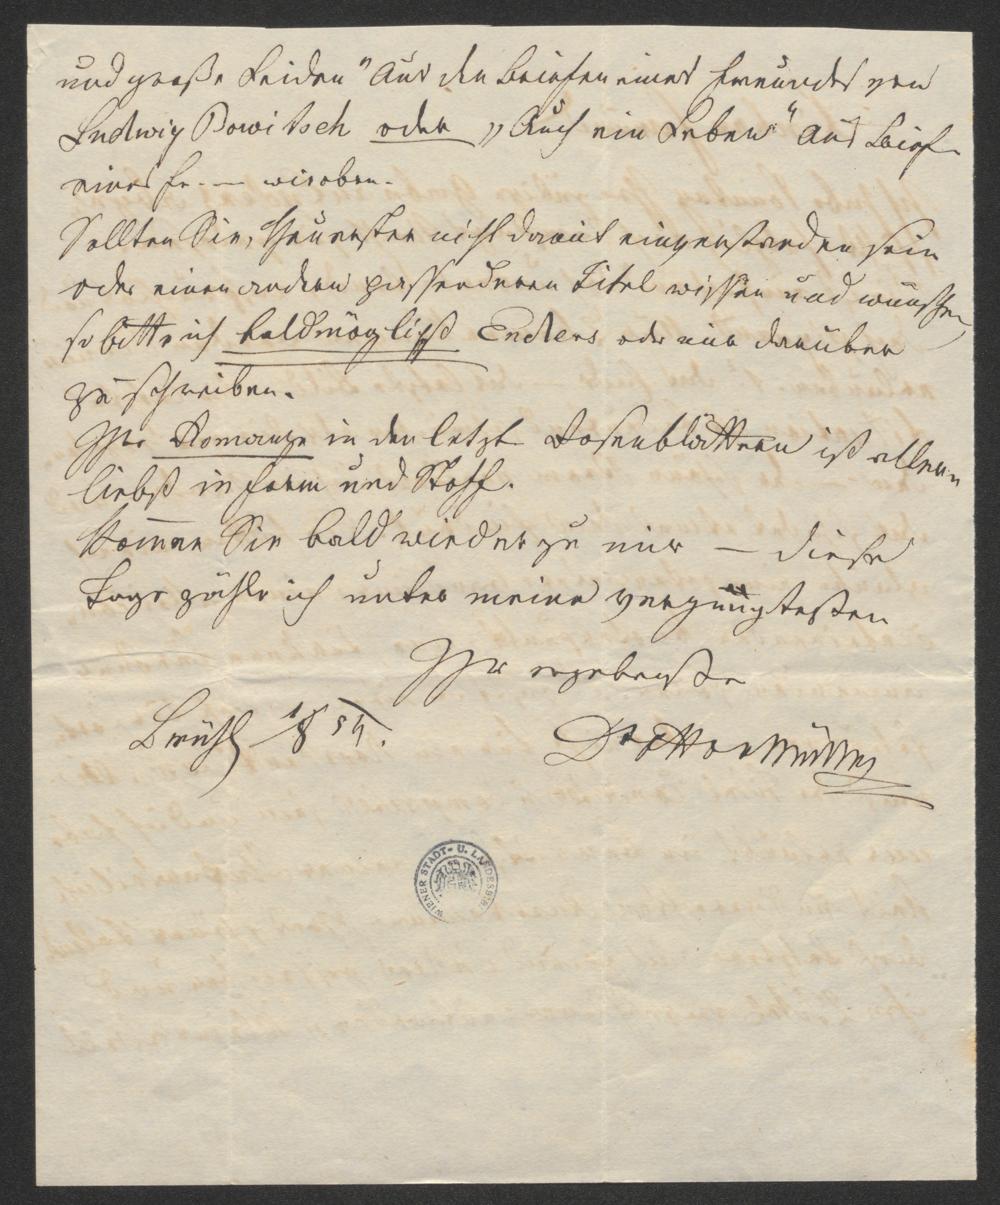 und große Leiden" Aus den Briefen eines Freundes von
Ludwig Bowitsch oder „Auch ein Leben" Aus Brief
eines Fr. — wie oben.
Sollten Sie, Theuerster nicht damit einverstanden sein
oder einen andern passenderen Titel wissen und wünschen
so bitte ich baldmöglichst Endlers oder mir darüber
zu schreiben.
Ihre Romanze in den letzt. Rosenblättern ist aller-
liebst in Form und Stoff.
Kommen Sie bald wieder zu mir — diese
Tage zähle ich unter meine vergnügtesten
Ihr ergebenster
Brühl 18/5 54.
WIENER STADT- U. LANDESBIBL.